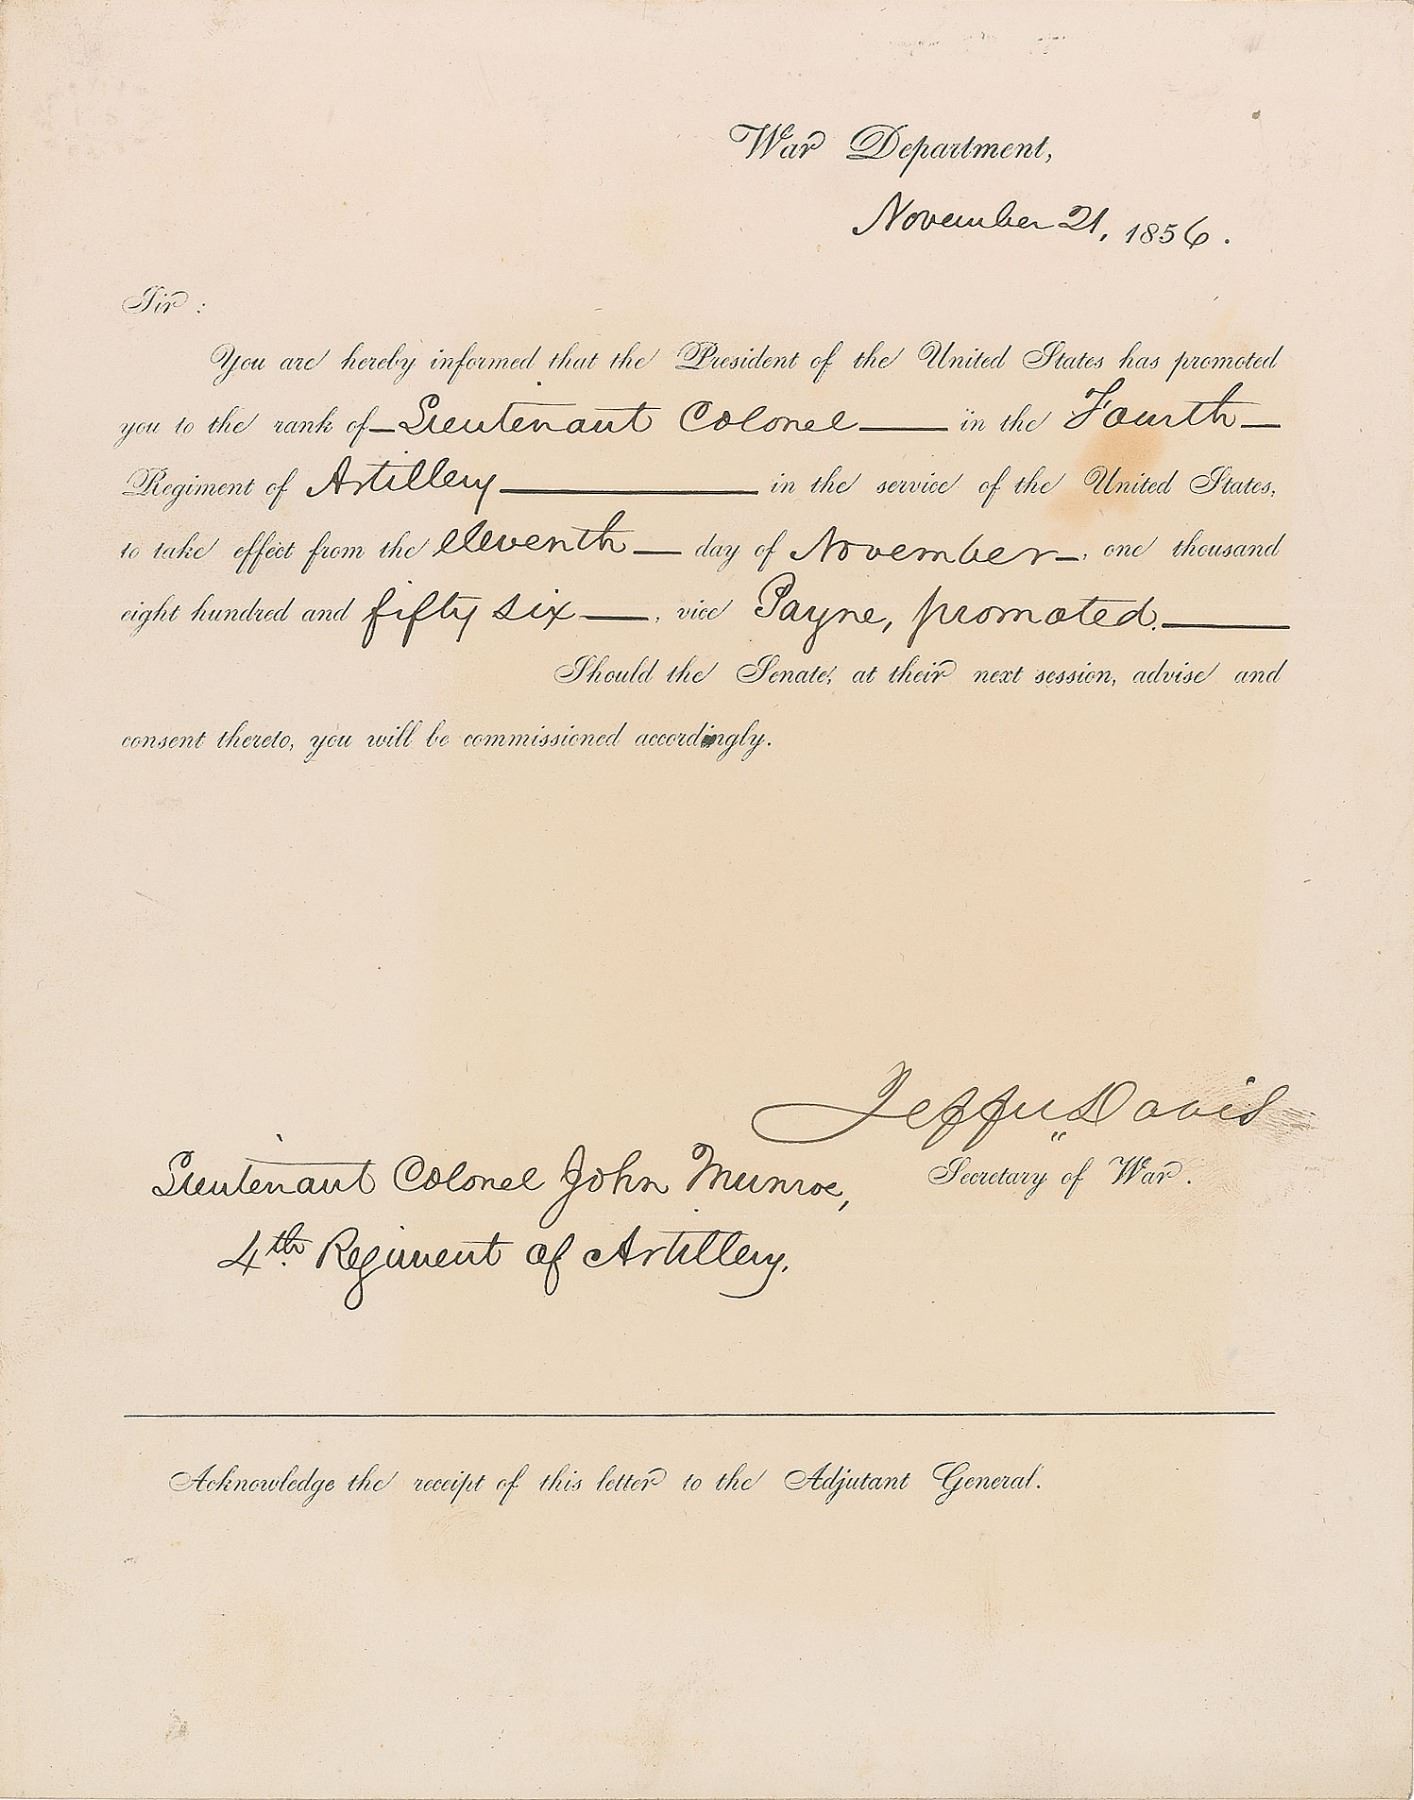 War Department,
November 21, 1856.
Sir :
You are hereby informed that the President of the United States has promoted
you to the rank of Lieutenant Colonel in the Fourth
Regiment of Artillery in the service of the United States,
to take effect from the eleventh day of November, one thousand
eight hundred and fifty six, vice Payne, promoted.
Should the Senate, at their next session, advise and
consent thereto, you will be commissioned accordingly.
Jeffn Davis
Secretary of War.
Lieutenant Colonel John Munroe,
4th Regiment of Artillery.
Acknowledge the receipt of this letter to the Adjutant General.